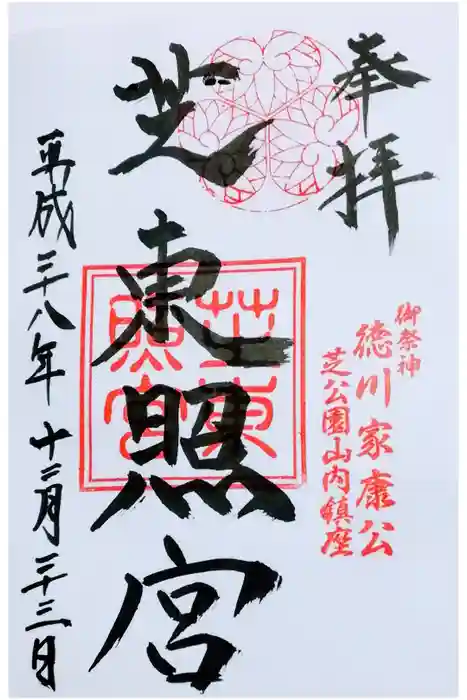 奉拝
御祭神
徳川家康公
芝公園山内鎮座
芝東照宮
芝東照宮
平成二十八年十二月二十三日